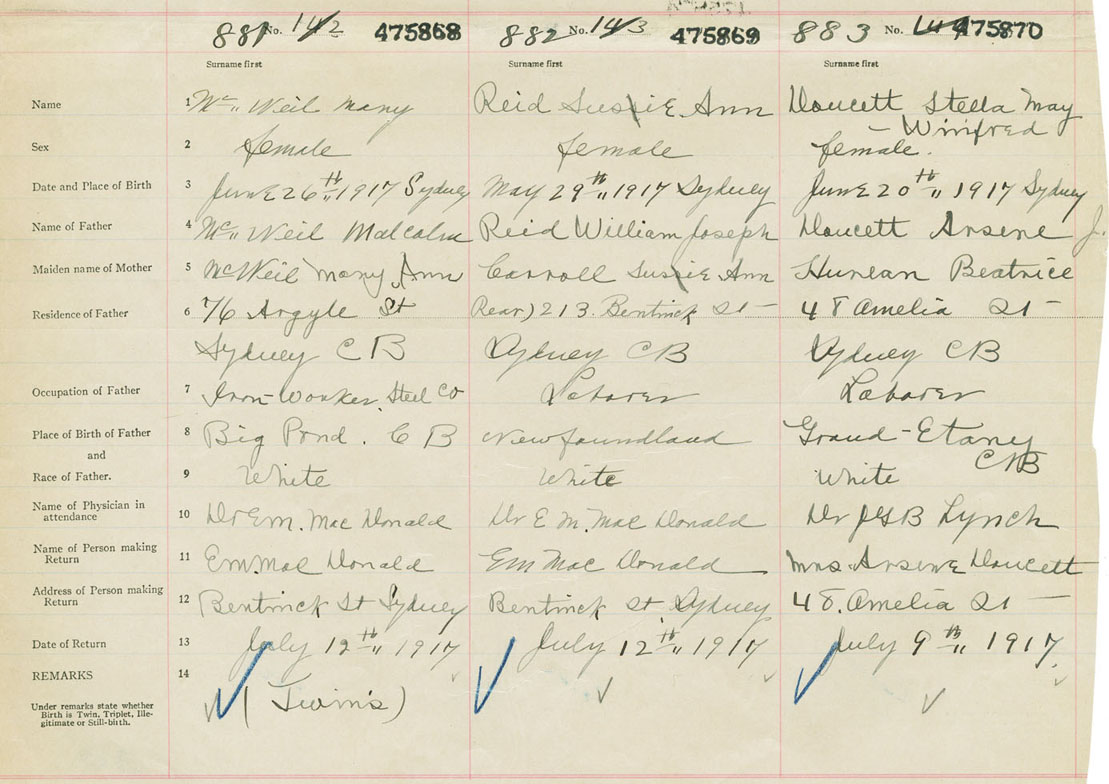 881 No. 142 475868 882 No. 143 475869 883 No. 144 475870
Surname first Surname first Surname first
Name 1 Mc" Neil Mary Reid Susie Ann Doucett Stella May
- Winifred
Sex 2 female female female.
Date and Place of Birth 3 June 26th" 1917 Sydney May 29th" 1917 Sydney June 20th" 1917 Sydney
Name of Father 4 Mc" Neil Malcolm Reid William Joseph Doucett Arsene J.
Maiden name of Mother 5 McNeil Mary Ann Carroll Susie Ann Beatrice
Residence of Father 6 76 Argyle St Rear) 213. Bentinck St - 48 Amelia St -
Sydney C B Sydney CB Sydney CB
Occupation of Father 7 Iron-Worker Steel Co Laborer Laborer
Place of Birth of Father 8 Big Pond. C B Newfoundland Grand-Etang
and CB
Race of Father. 9 White White White
Name of Physician in
attendance 10 Dr E M. Mac Donald Dr E M. Mac Donald Dr JGB Lynch
Name of Person making
Return 11 E M Mac Donald E M Mac Donald Mrs Arsene Doucett
Address of Person making
Return 12 Bentinck St Sydney Bentinck St Sydney 48. Amelia St -
Date of Return 13 July 12th" 1917 July 12th" 1917 July 9th" 1917
REMARKS 14
Under remarks state whether
Birth is Twin, Triplet, Ille-
gitimate or Still-birth.
(Twin's)